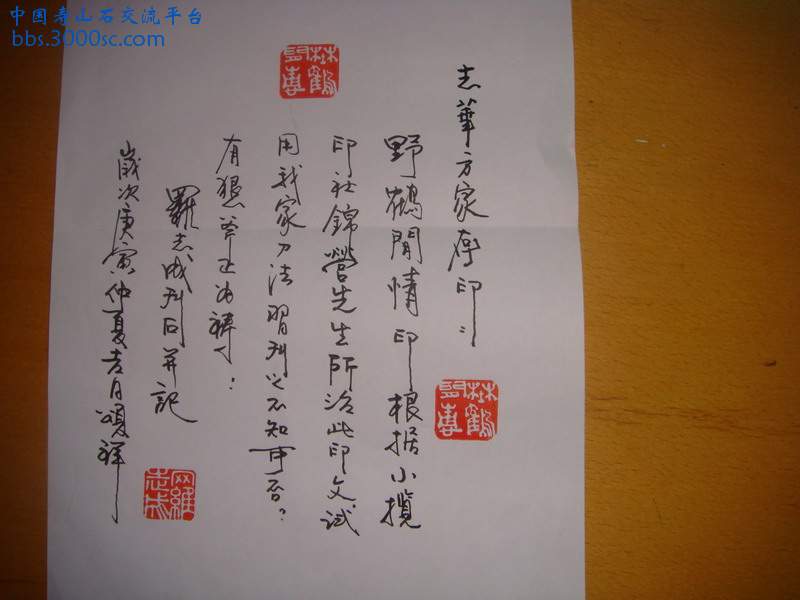 中国寿山石交流平台
bbs.3000sc.com
志華方家存印：
野鶴閒情印根据小攬
印社錦營先生所治此印文試
用我家刀法習刊之不知可否？
有狠斧正為禱：
羅志成刊石并記
歲次庚寅仲夏吉月頌祥
羅志成